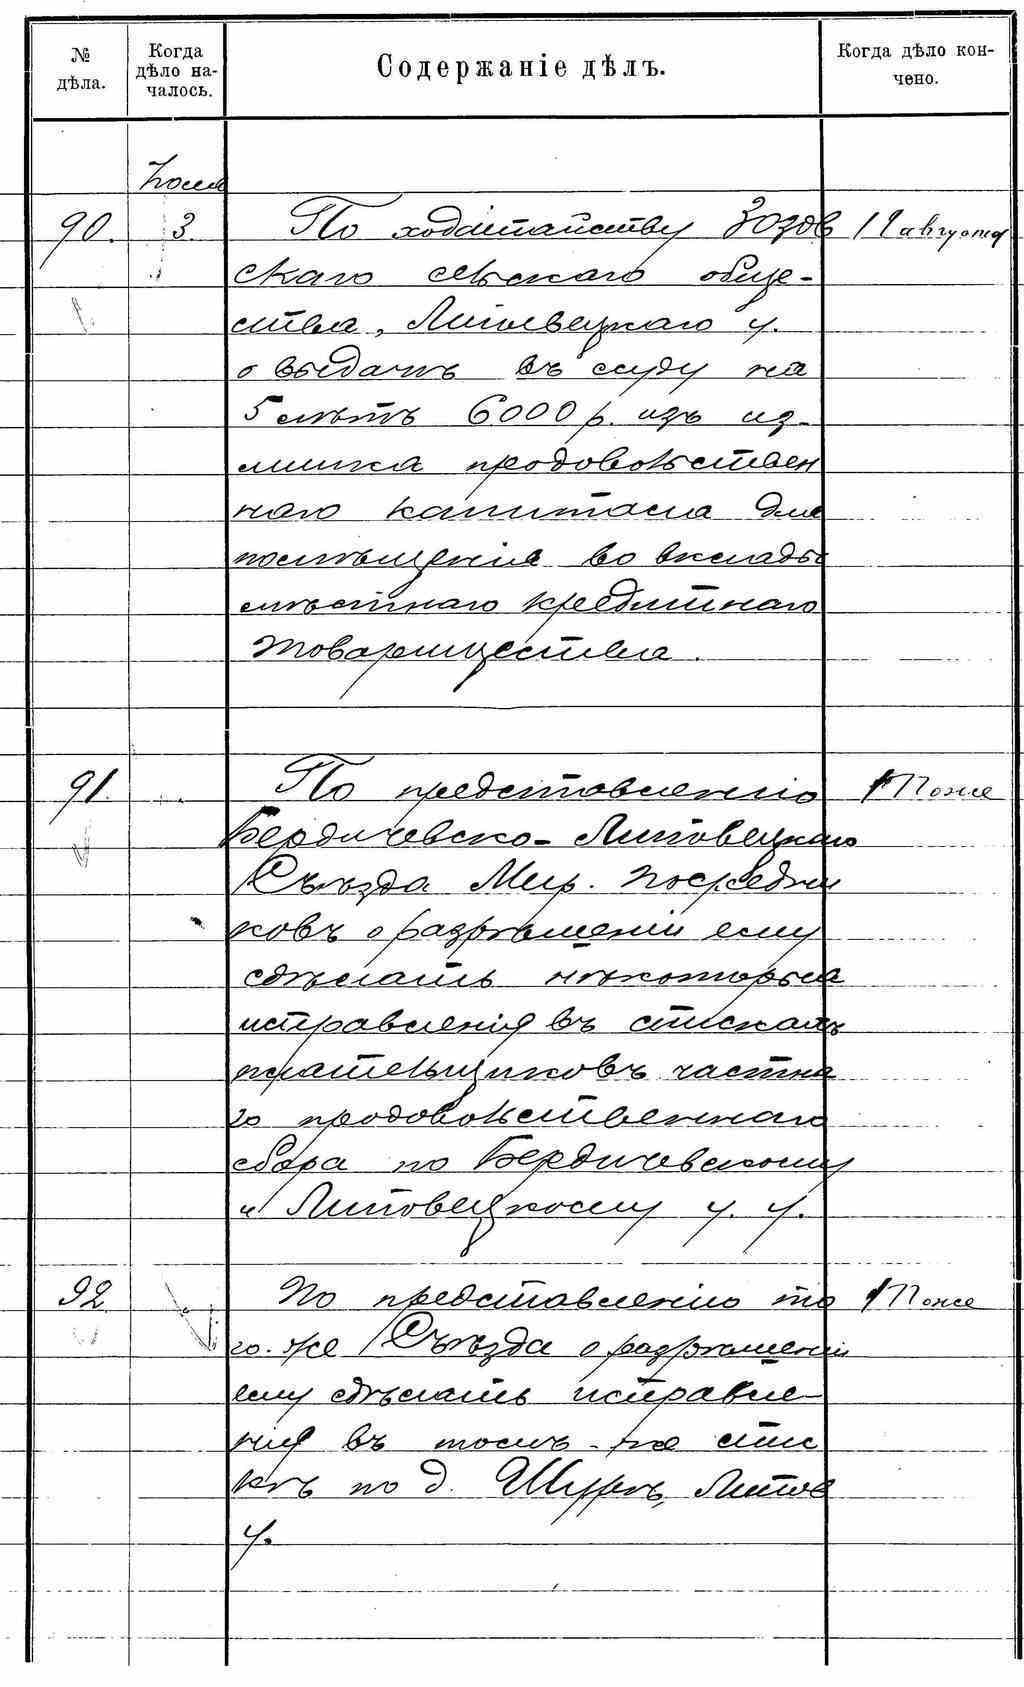 № дѣла.
Когда дѣло на-
чалось.
Содержаніе дѣлъ.
Когда дѣло кон-
чено.
90. 3. По ходатайству Зоздв 12 августа
скаго сельскаго обще-
ства, Липовецкаго у.
о выдачѣ въ ссуду на
5 лѣтъ 6000 р. изъ из-
лишка продовольствен
наго капитала для
помѣщенія во вклады
мѣстнаго кредитнаго
товарищества.
91. По представленію Тоже
Бердичевско-Липовецкаго
Съѣзда Мир. Посредни
ковъ о разрѣшеніи ему
сдѣлать нѣкоторыя
исправленія въ спискахъ
плательщиковъ частна
го продовольственнаго
сбора по Бердичевскому
и Липовецкому у. у.
92. По представленію то Тоже
го-же Съѣзда о разрѣшеніи
ему сдѣлать исправле-
нія въ томъ-же спис
кѣ по д. Шуркѣ, Липов
у.